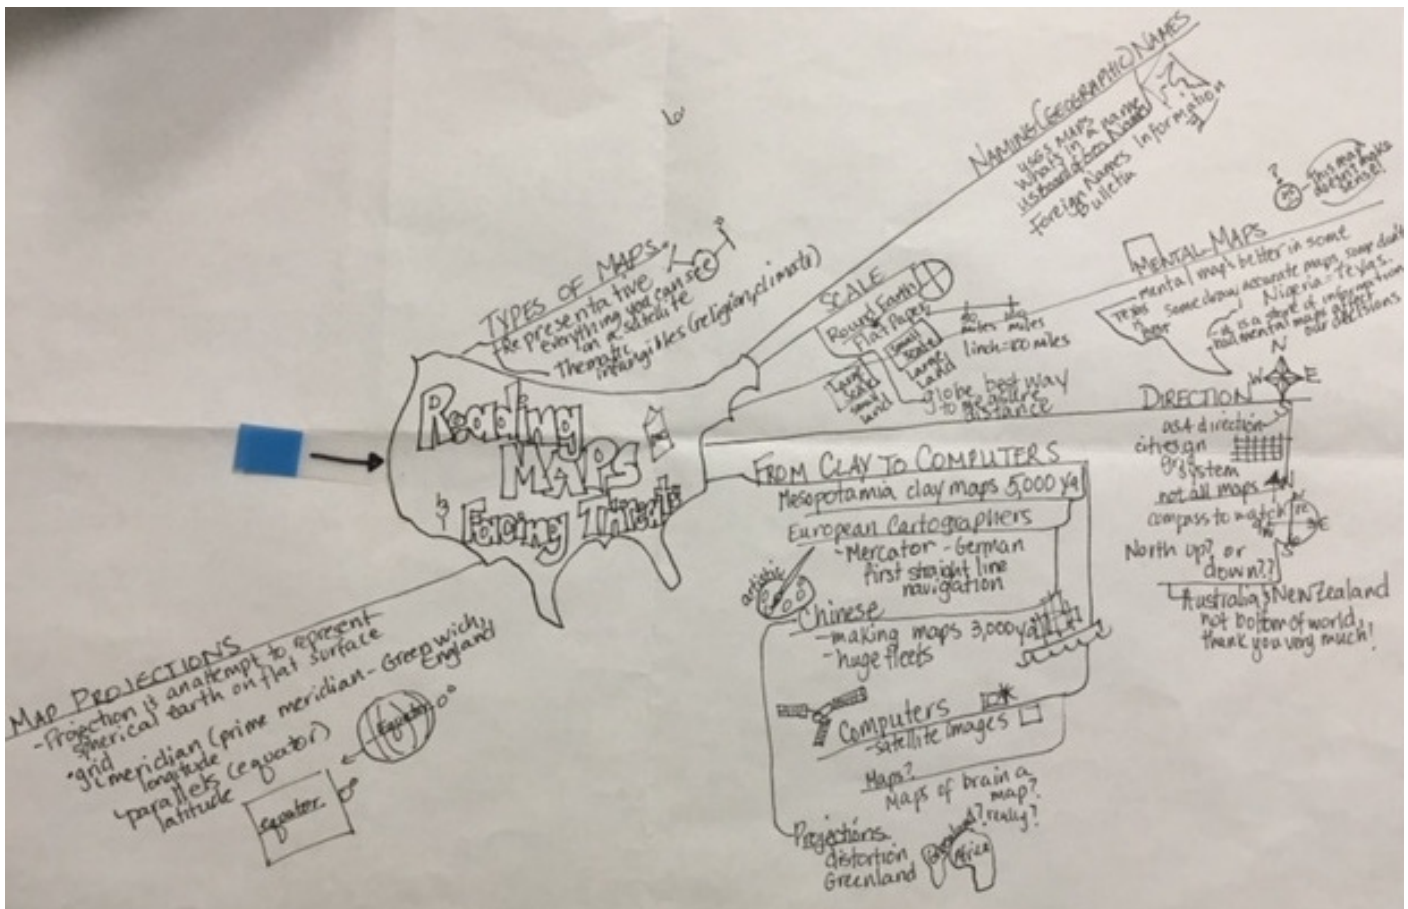 Reading
MAPS
&
Facing Threats
TYPES OF MAPS
Representative
everything you can see
on a satellite
Thematic
intangibles (religion, climate)
NAMING (GEOGRAPHIC) NAMES
USGS MAPS
What's in a name
US Board of Geo Names
Foreign Names Information
Bulletin
SCALE
Round Earth
Flat Paper
Small
Scale
Large
Land
Large
Scale
Small
Land
miles miles
1 inch = 100 miles
globe best way
to measure
distance
? This map
doesn't make
sense!
MENTAL MAPS
mental maps better in some
some draw accurate maps, some don't
Nigeria - Texas
it is a store of information
mental maps affect
our decisions
DIRECTION
N
W E
as a direction
cities on
grid
system
not all maps N
compass to match
N
E
S
North up? or
down??
Australia & New Zealand
not bottom of world,
thank you very much!
FROM CLAY TO COMPUTERS
Mesopotamia clay maps 5,000 ya
European Cartographers
- Mercator - German
first straight line
navigation
artistic
Chinese
- making maps 3,000 ya
- huge fleets
Computers
- satellite images
Maps?
Maps of brain a
map?
? really?
Projections
distortion
Greenland
Greenland
Africa
MAP PROJECTIONS
- Projection is an attempt to represent
spherical earth on flat surface
• grid
meridian (prime meridian - Greenwich,
England
longitude
parallels (equator)
latitude
Equator 0°
equator 0°